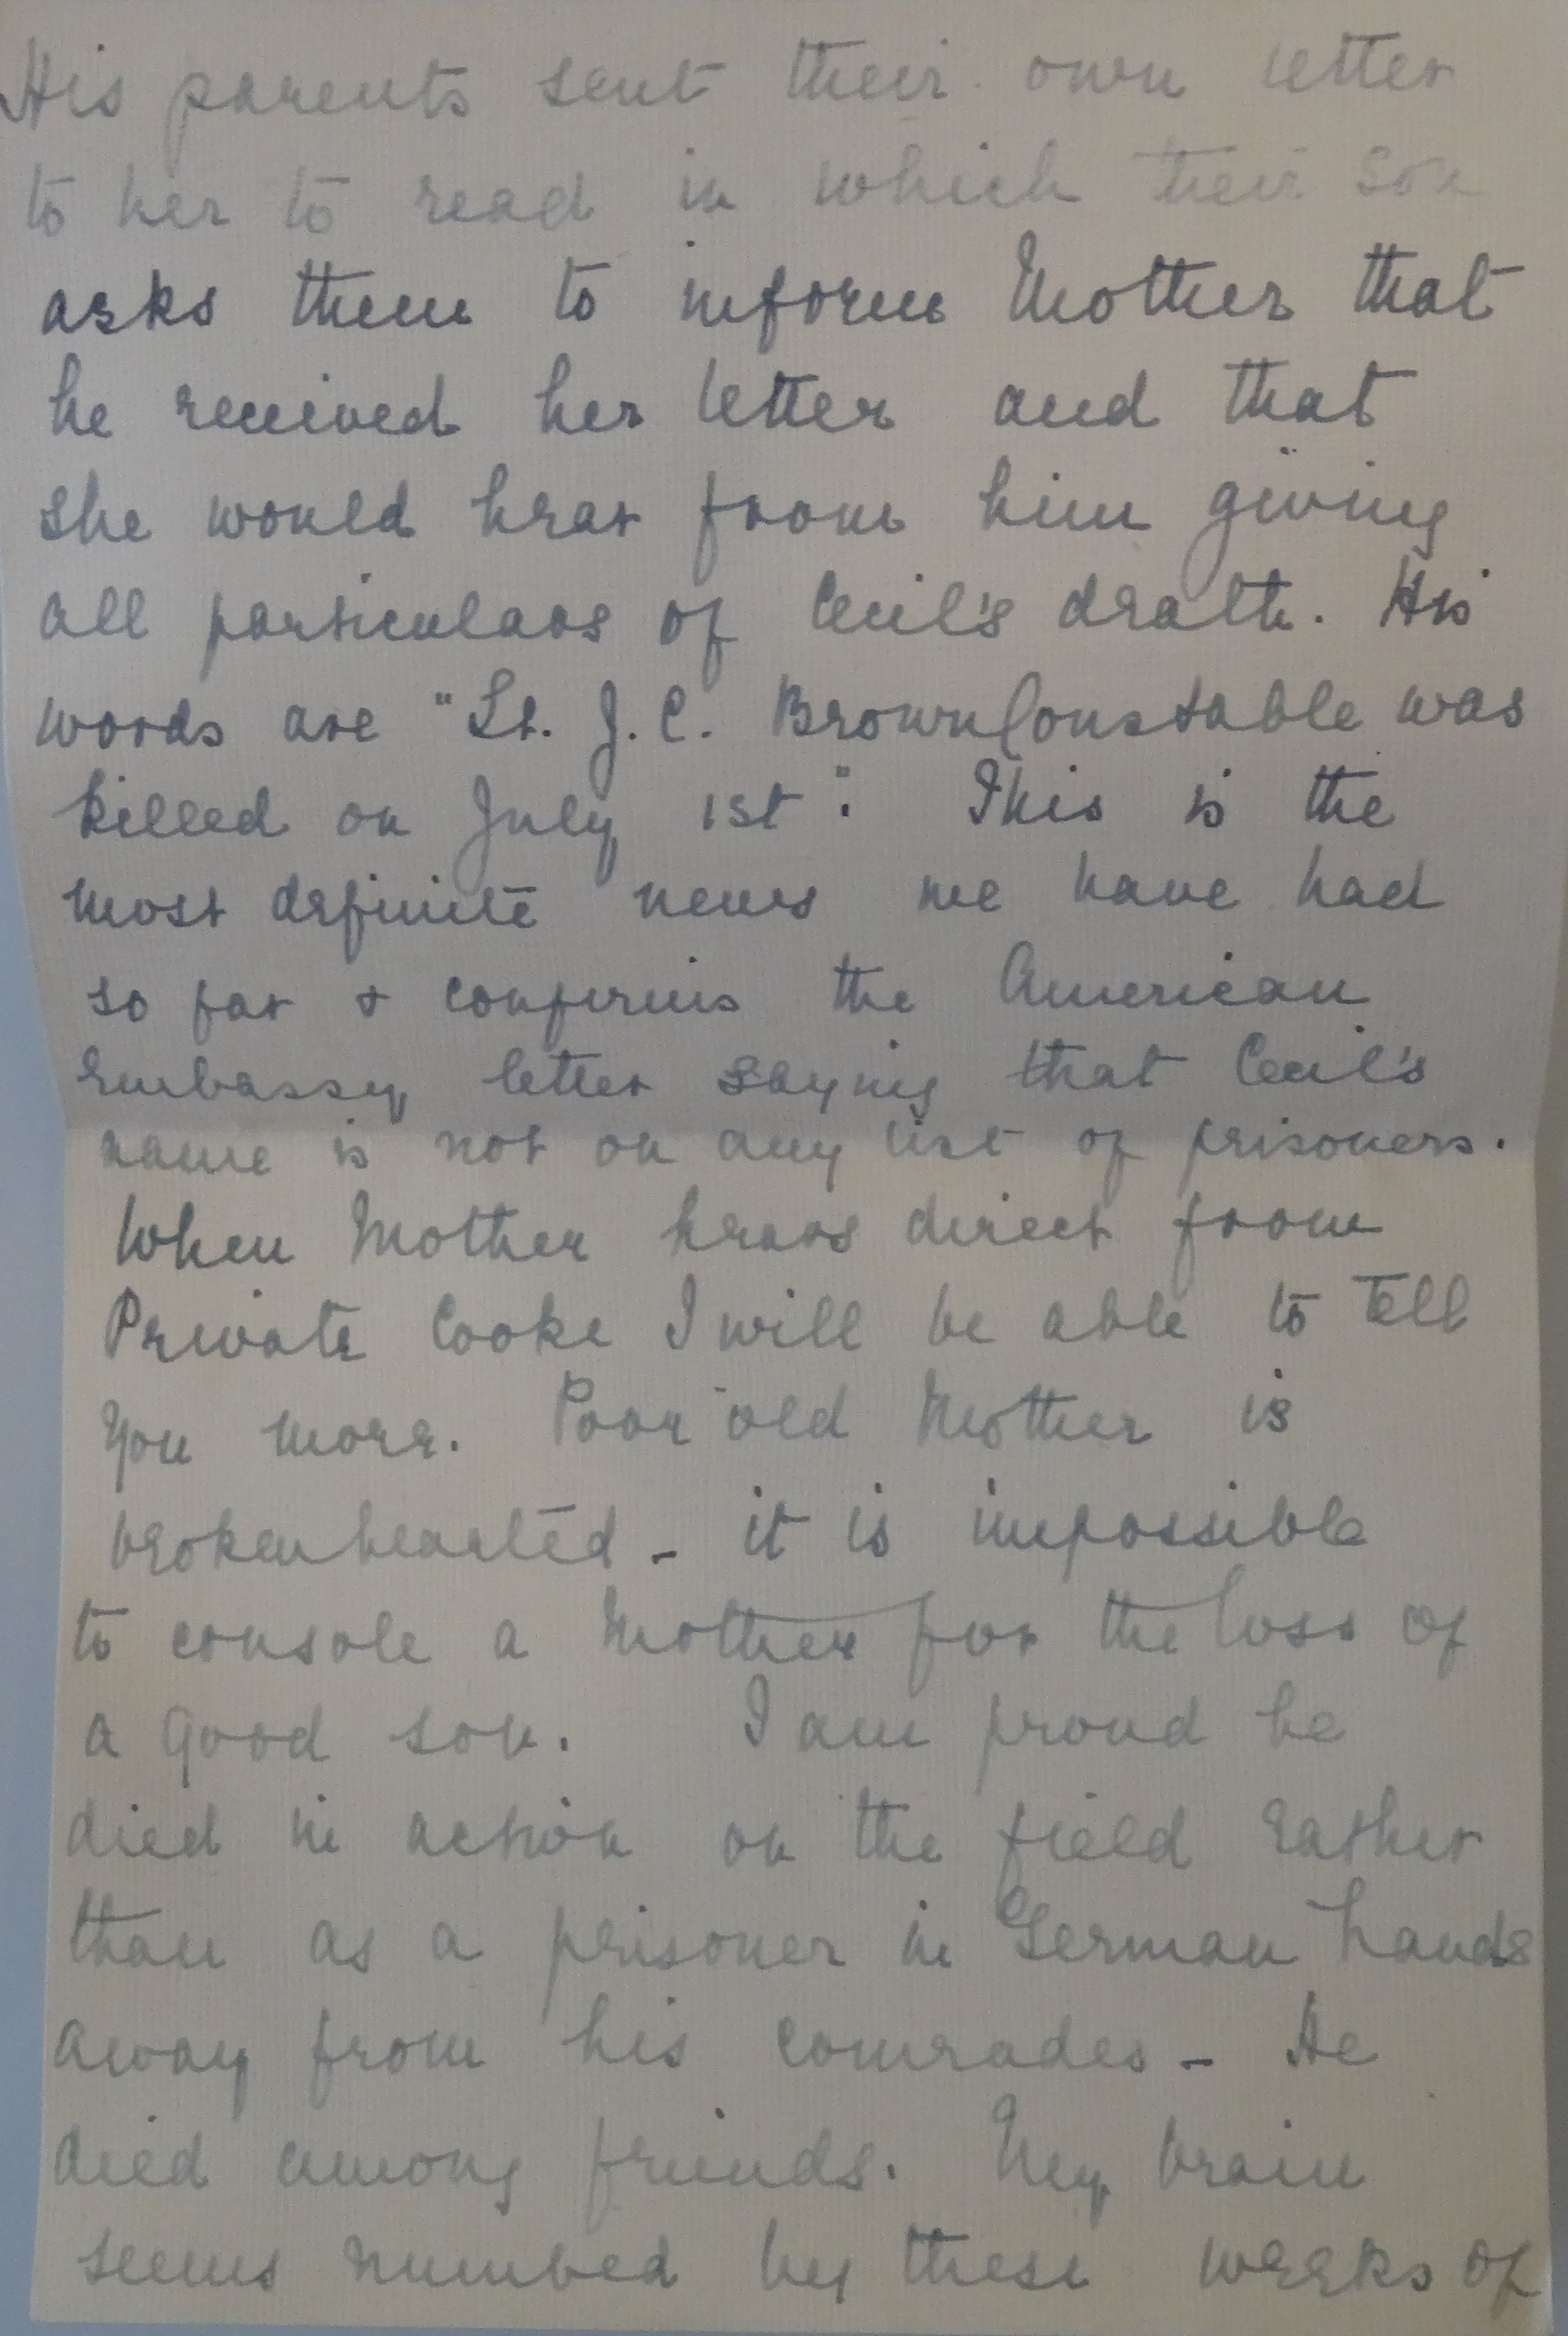 His parents sent their own letter
to her to read in which their son
asks them to inform Mother that
he received her letter and that
she would hear from him giving
all particulars of Cecil's death. His
words are "Lt. J.C. Brown Constable was
killed on July 1st". This is the
most definite news we have had
so far & confirms the American
Embassy letter saying that Cecil's
name is not on any list of prisoners.
When Mother hears direct from
Private Cooke I will be able to tell
you more. Poor old Mother is
brokenhearted - it is impossible
to console a Mother for the loss of
a good son. I am proud he
died in action on the field rather
than as a prisoner in German hands
away from his comrades - He
died among friends. My brain
seems numbed by these weeks of